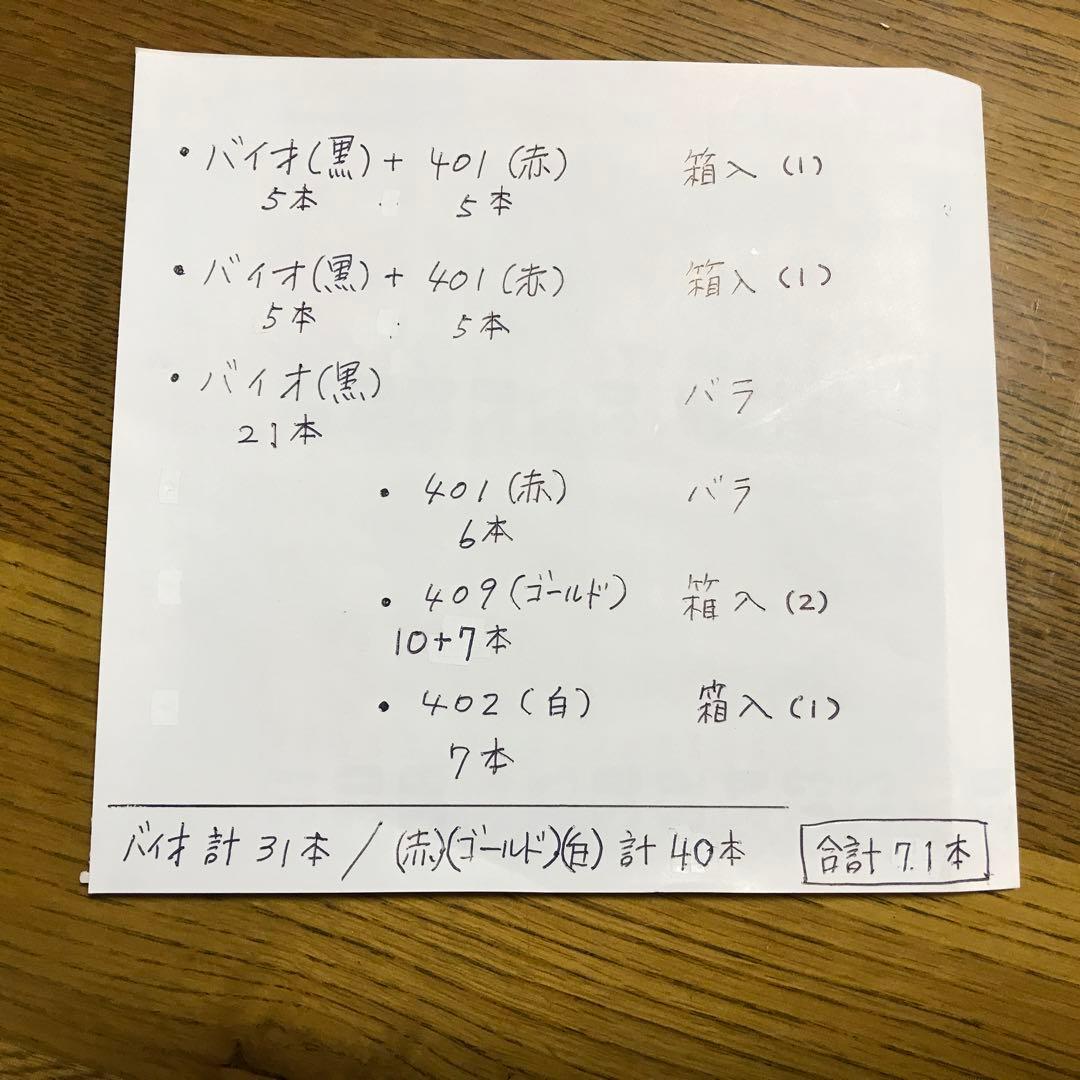 ・バイオ(黒)+ 401(赤) 箱入(1)
5本 5本
・バイオ(黒)+ 401(赤) 箱入(1)
5本 5本
・バイオ(黒) バラ
21本
・401(赤) バラ
6本
・409(ゴールド) 箱入(2)
10+7本
・402(白) 箱入(1)
7本
バイオ計31本/(赤)(ゴールド)(白)計40本 合計71本